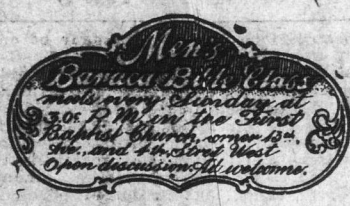 Men's
Baraca Bible Class
meets every Sunday at
P.M. in the First
Baptist Church, corner 13th
Ave. and 4th Street West
Open discussion. All welcome.